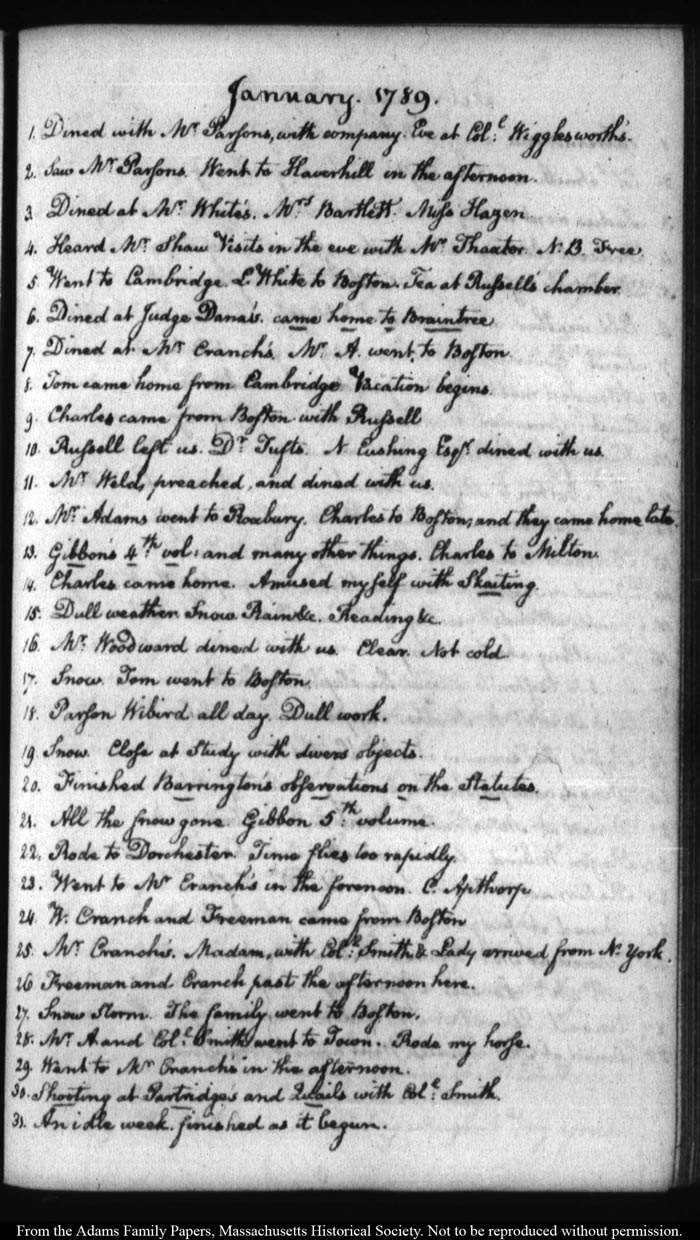 January. 1789.
1. Dined with Mr. Parsons, with company. Eve at Col:l Wigglesworth's.
2. Saw Mr. Parsons. Went to Haverhill in the afternoon.
3. Dined at Mr. White's. Mrs. Bartlett. Miss Hazen
4. Heard Mr. Shaw Visits in the eve with Mr. Thaxter. N.B. Free
5. Went to Cambridge. L. White to Boston. Tea at Russell's chamber.
6. Dined at Judge Dana's. came home to Braintree
7. Dined at Mr. Cranch's. Mr. A. went, to Boston.
8. Tom came home from Cambridge Vacation begins.
9. Charles came from Boston with Russell
10. Russell left us. Dr. Tufts. N. Cushing Esqr. dined with us.
11. Mr. Weld, preached, and dined with us.
12. Mr. Adams went to Roxbury. Charles to Boston; and they came home late.
13. Gibbon's 4th: vol: and many other things. Charles to Milton.
14. Charles came home. Amused myself with Skaiting.
15. Dull weather. Snow. Rain &c. Reading &c.
16. Mr. Woodward dined with us. Clear. Not cold.
17. Snow. Tom went to Boston.
18. Parson Wibird all day. Dull work.
19. Snow. Close at Study with divers objects.
20. Finished Barrington's observations on the Statutes.
21. All the snow gone. Gibbon 5:th volume.
22. Rode to Dorchester. Time flies too rapidly.
23. Went to Mr. Cranch's in the forenoon. C. Apthorp
24. W. Cranch and Freeman came from Boston
25. Mr. Cranch's. Madam, with Col:l Smith & Lady arrived from N. York.
26. Freeman and Cranch past the afternoon here.
27. Snow storm. The family went to Boston.
28. Mr. A and Col:l Smith went to Town. Rode my horse.
29. Went to Mr. Cranch's in the afternoon.
30. Shooting at Partridges and Quails with Col:l Smith.
31. An idle week. finished as it begun.
From the Adams Family Papers, Massachusetts Historical Society. Not to be reproduced without permission.